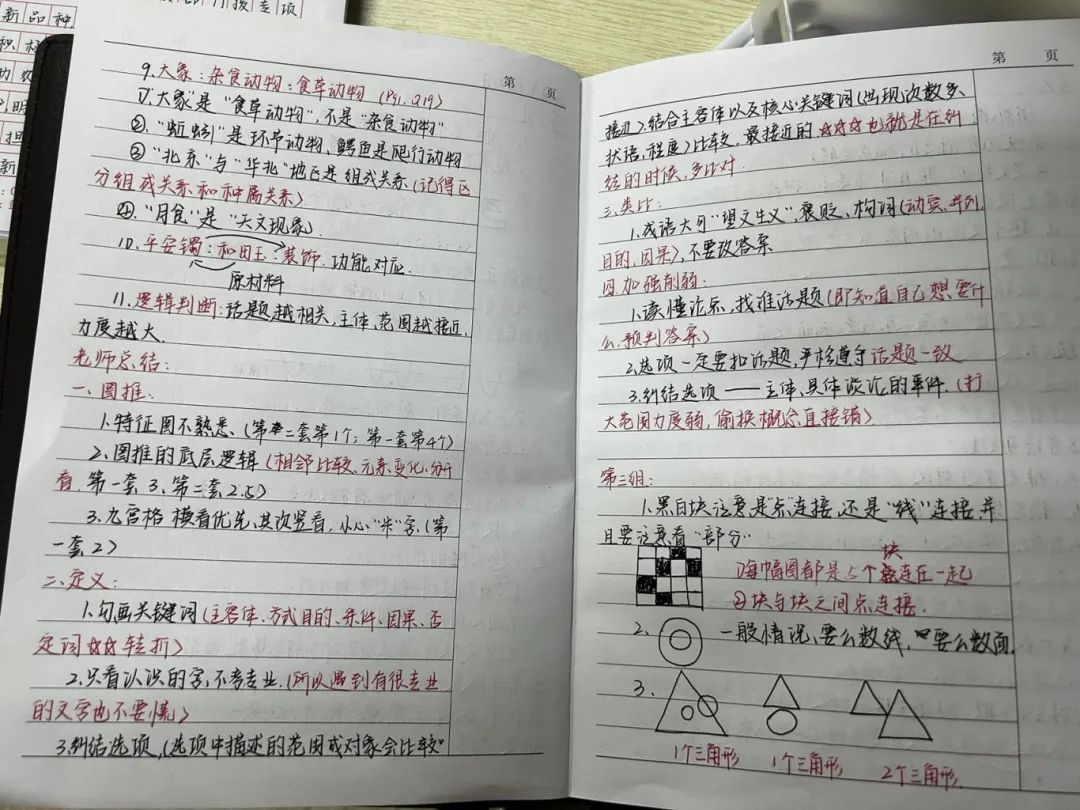 新品种,
第 页
9.大象:杂食动物:食草动物 (P91. Q19)
①."大象"是"食草动物",不是"杂食动物"
②."蚯蚓"是环节动物、鳄鱼是爬行动物
③"北京"与"华北"地区是组成关系(记得区
分组成关系和种属关系)
④."月食"是"天文现象"
10.平安镯:和田玉:装饰.功能对应.
原材料
11.逻辑判断:话题越相关,主体、范围越接近,
力度越大.
老师总结:
一.图推:
1.特征图不熟悉、(第二套第1个;第一套第4个)
2.图推的底层逻辑(相邻比较、元素变化、分开
看.第一套3、第二套2.5)
3.九宫格 横看优先,其次竖看,小心"米"字.(第
一套2)
二.定义:
1.勾画关键词(主客体、方式目的、条件、因果、否
定词☆☆转折)
2.只看认识的字,不考专业.(所以遇到有很专业
的文字也不要慌)
3.纠结选项,(选项中描述的范围或对象会比较"
第 页
接近).结合主客体以及核心关键词(出现次数多、
状语、程度)比较,最接近的☆☆☆也就是在纠
结的时候,多比对.
三.类比:
1.成语大多"望文生义",褒贬、构词(动宾、并列、
目的、因果),不要改答案
四.加强削弱:
1.读懂论点,找准话题(即知道自己想要什
么.预判答案)
2.选项一定要扣话题,严格遵守话题一致
3.纠结选项——主体、具体谈论的事件.(打
大范围力度弱,偷换概念直接错)
第三组:
1.黑白块注意是"点"连接,还是"线"连接.并
且要注意看"部分"
块
①每幅图都是5个连在一起
②块与块之间点连接.
2.
一般情况,要么数线,要么数面.
3.
1个三角形 1个三角形 2个三角形.